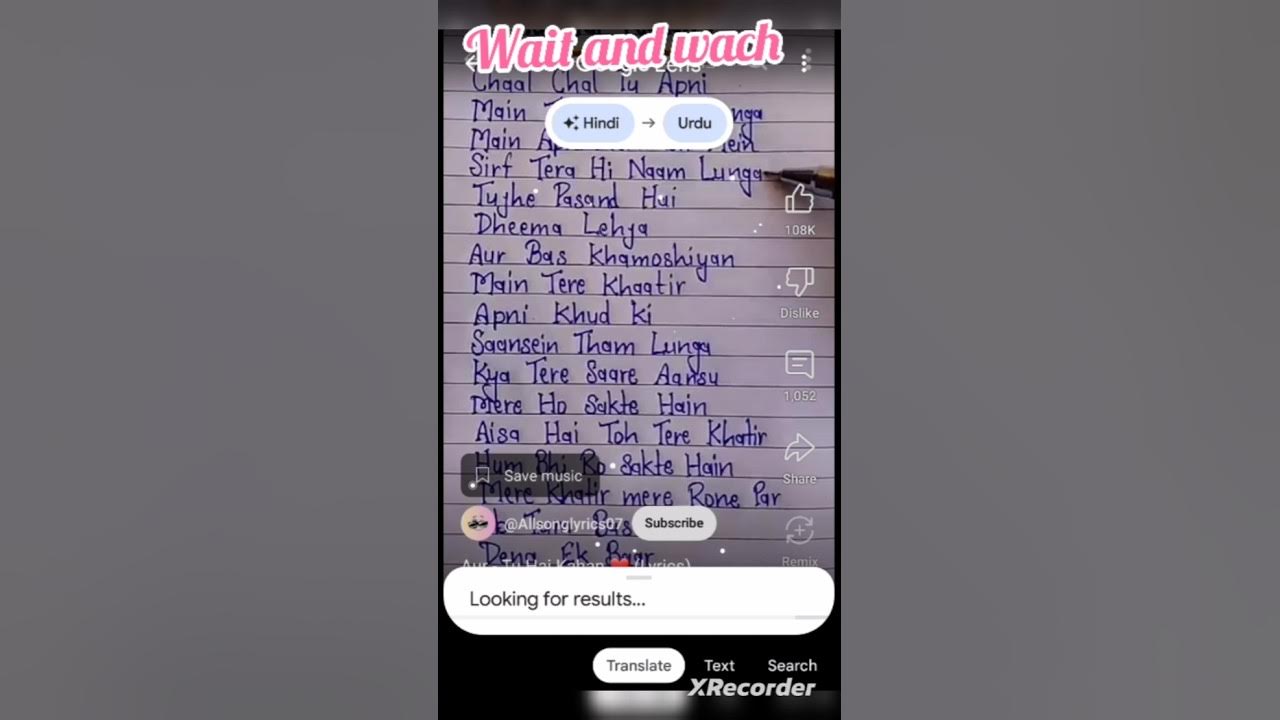 Wait and wach
Google Lens
Chaal Chal Tu Apni
Hindi → Urdu
Main nga
Main mein
Sirf Tera Hi Naam Lunga
Tujhe Pasand Hai
Dheema Lehja
108K
Aur Bas Khamoshiyan
Main Tere Khaatir
Dislike
Apni Khud Ki
Saansein Tham Lunga
Kya Tere Saare Aansu
1,052
Mere Ho Sakte Hain
Aisa Hai Toh Tere Khatir
Hum Bhi Ro Sakte Hain
Save music
Share
Mere Khatir mere Rone Par
@Allsonglyrics07 Subscribe
Dena Ek Baar
Remix
Aur Tu Hai Kahan ❤️ (Lyrics)
Looking for results...
Translate Text Search
XRecorder